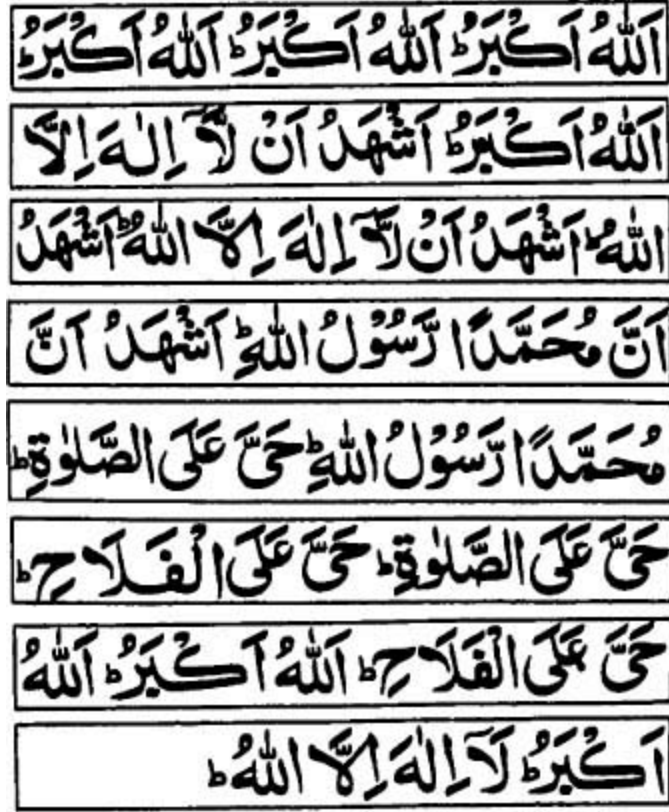 اَللّٰهُ اَكْبَرُؕ اَللّٰهُ اَكْبَرُؕ اَللّٰهُ اَكْبَرُؕ
اَللّٰهُ اَكْبَرُؕ اَشْهَدُ اَنْ لَّآ اِلٰهَ اِلَّا
اللّٰهُؕ اَشْهَدُ اَنْ لَّآ اِلٰهَ اِلَّا اللّٰهُؕ اَشْهَدُ
اَنَّ مُحَمَّدًا رَّسُوْلُ اللّٰهِؕ اَشْهَدُ اَنَّ
مُحَمَّدًا رَّسُوْلُ اللّٰهِؕ حَیَّ عَلَی الصَّلٰوةِؕ
حَیَّ عَلَی الصَّلٰوةِؕ حَیَّ عَلَی الْفَلَاحِؕ
حَیَّ عَلَی الْفَلَاحِؕ اَللّٰهُ اَكْبَرُؕ اَللّٰهُ
اَكْبَرُؕ لَآ اِلٰهَ اِلَّا اللّٰهُؕ